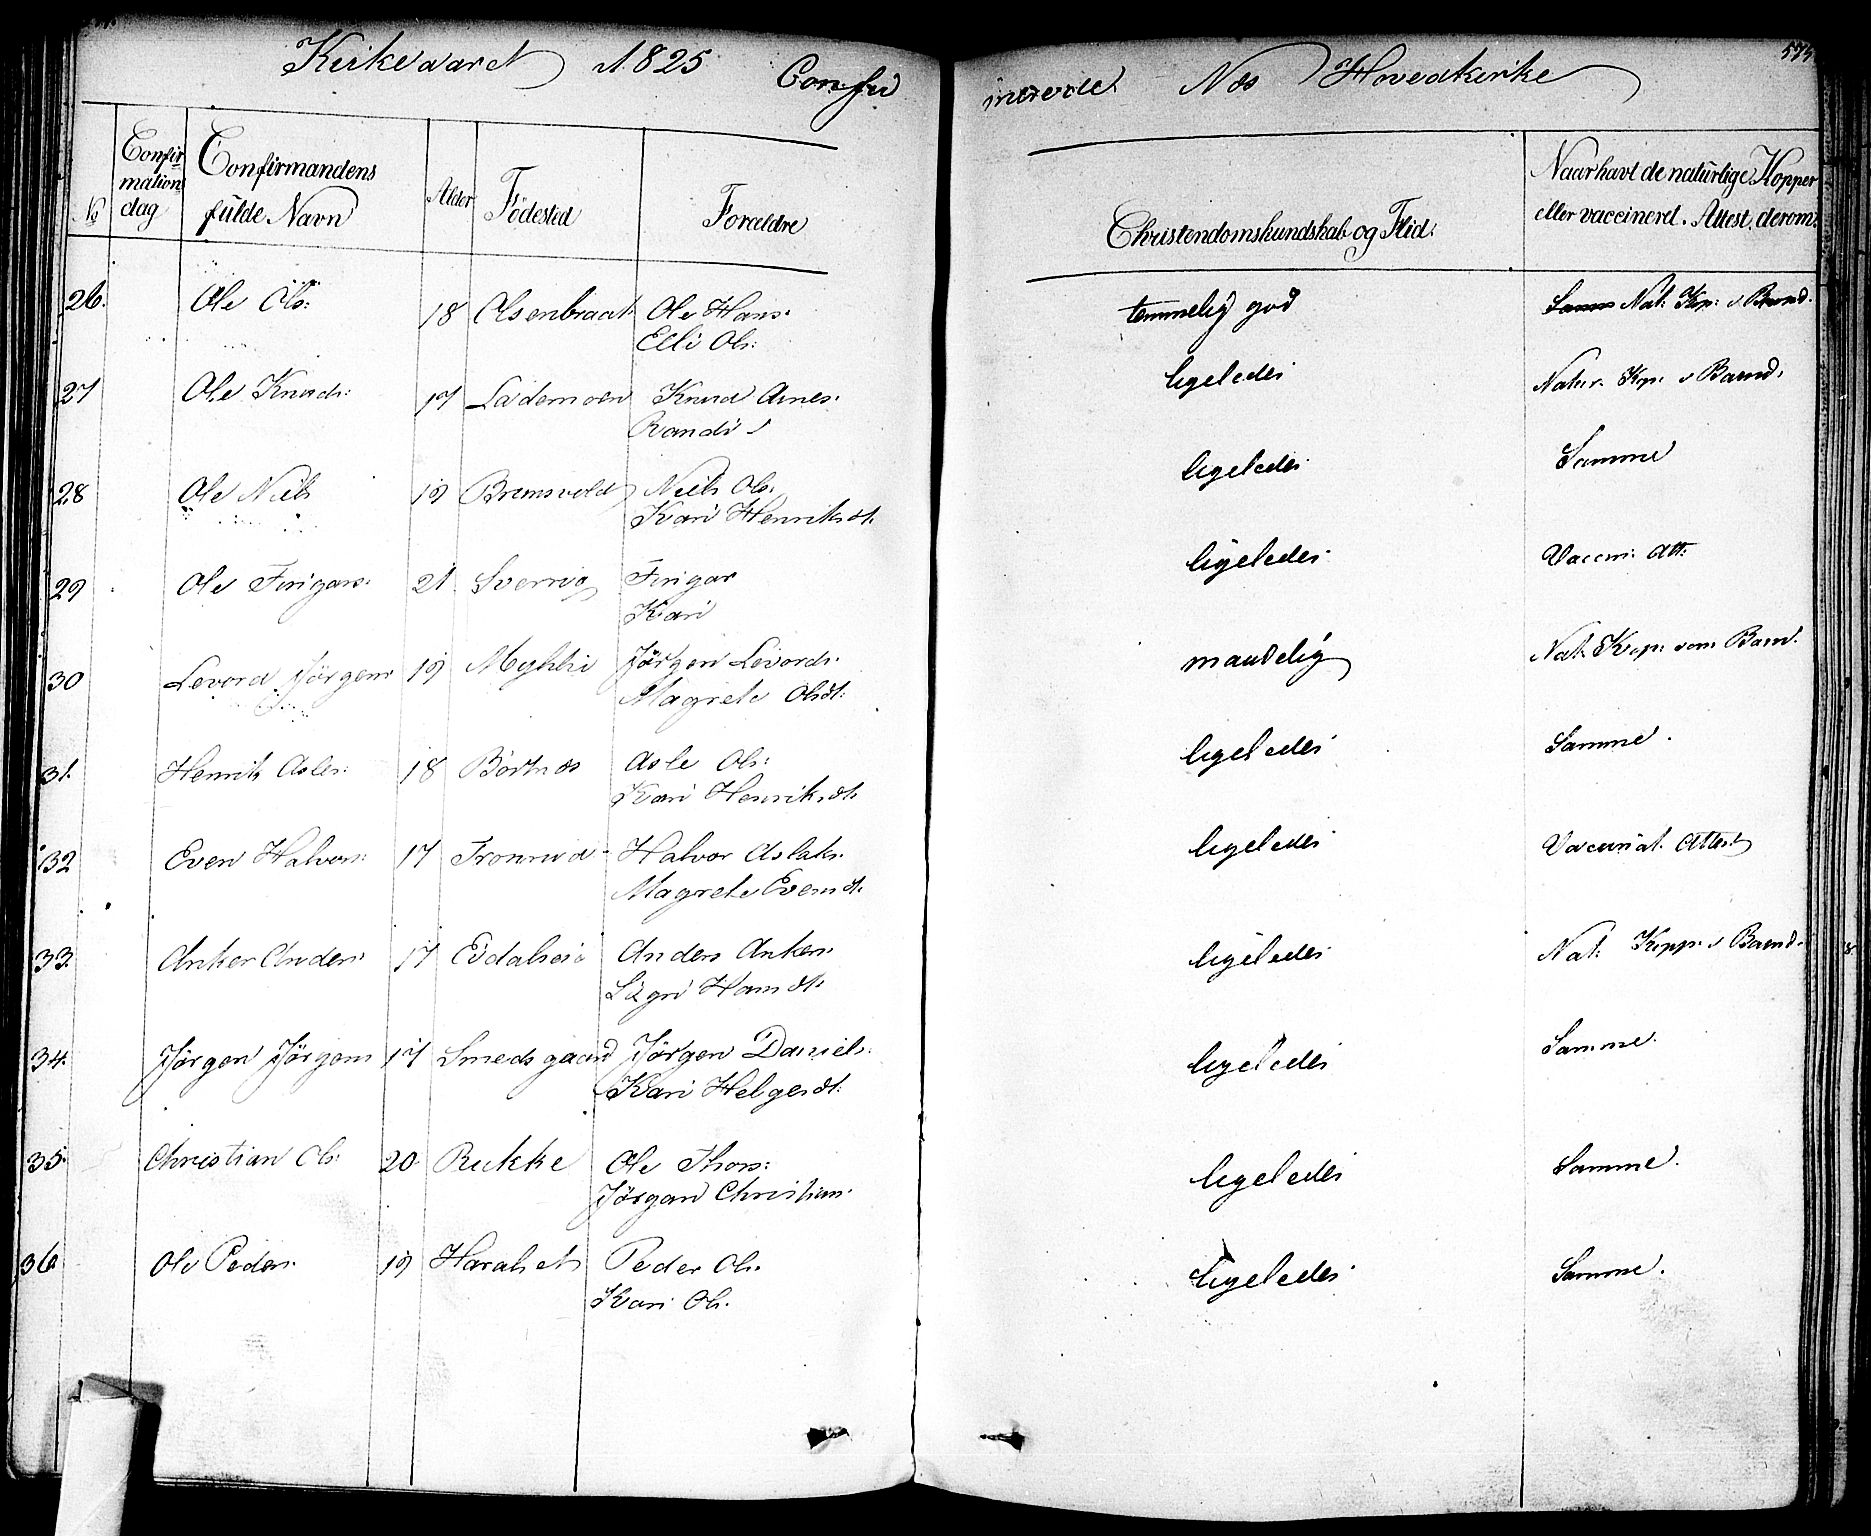 Kirkeaaret 1825 Confir
merede Næs Hovedkirke 575
No
Confir
mations
dag
Confirmandens
fulde Navn
Alder
Födested
Forældre
Christendomskundskab og Flid:
Naar havt de naturlige Kopper
eller vaccinerd. Attest. derom.
26. Ole Ols: 18 Olsenbraat Ole Hans: temmelig god Nat: Kop: s Barnd.
Elli Ols:
27 Ole Knuds: 17 Lademoen Knud Arnes: ligeledes Natur. Kop: s Barnd.
Randi
28 Ole Niels 19 Bremsvold Niels Ols: ligeledes Samme
Kari Henriksdt.
29 Ole Fingars: 21 Sverrig Fingar ligeledes Vaccin: Att:
Kari
30 Levord Jørgens 19 Myhli Jørgen Levords: maadelig Nat. Kop: som Barn.
Magrete Olsdt:
31. Henrik Asles: 18 Børtnes Asle Ols: ligeledes Samme.
Kari Henriksdt.
32 Even Halvors: 17 Tronrud Halvor Aslaks: ligeledes Vaccinat. Attest
Magrete Evensdt.
33. Anker Anders: 17 Eidalseie Anders Ankers: ligeledes Nat: Kopp: s Barnd.
Sigri Hansdt:
34. Jørgen Jørgens 17 Smedsgaard Jørgen Daniels: ligeledes Samme.
Kari Helgesdt:
35. Christian Ols: 20 Rukke Ole Thors: ligeledes Samme.
Jørgan Christian:
36 Ole Peders: 19 Haralset Peder Ols. ligeledes Samme.
Kari Ols.